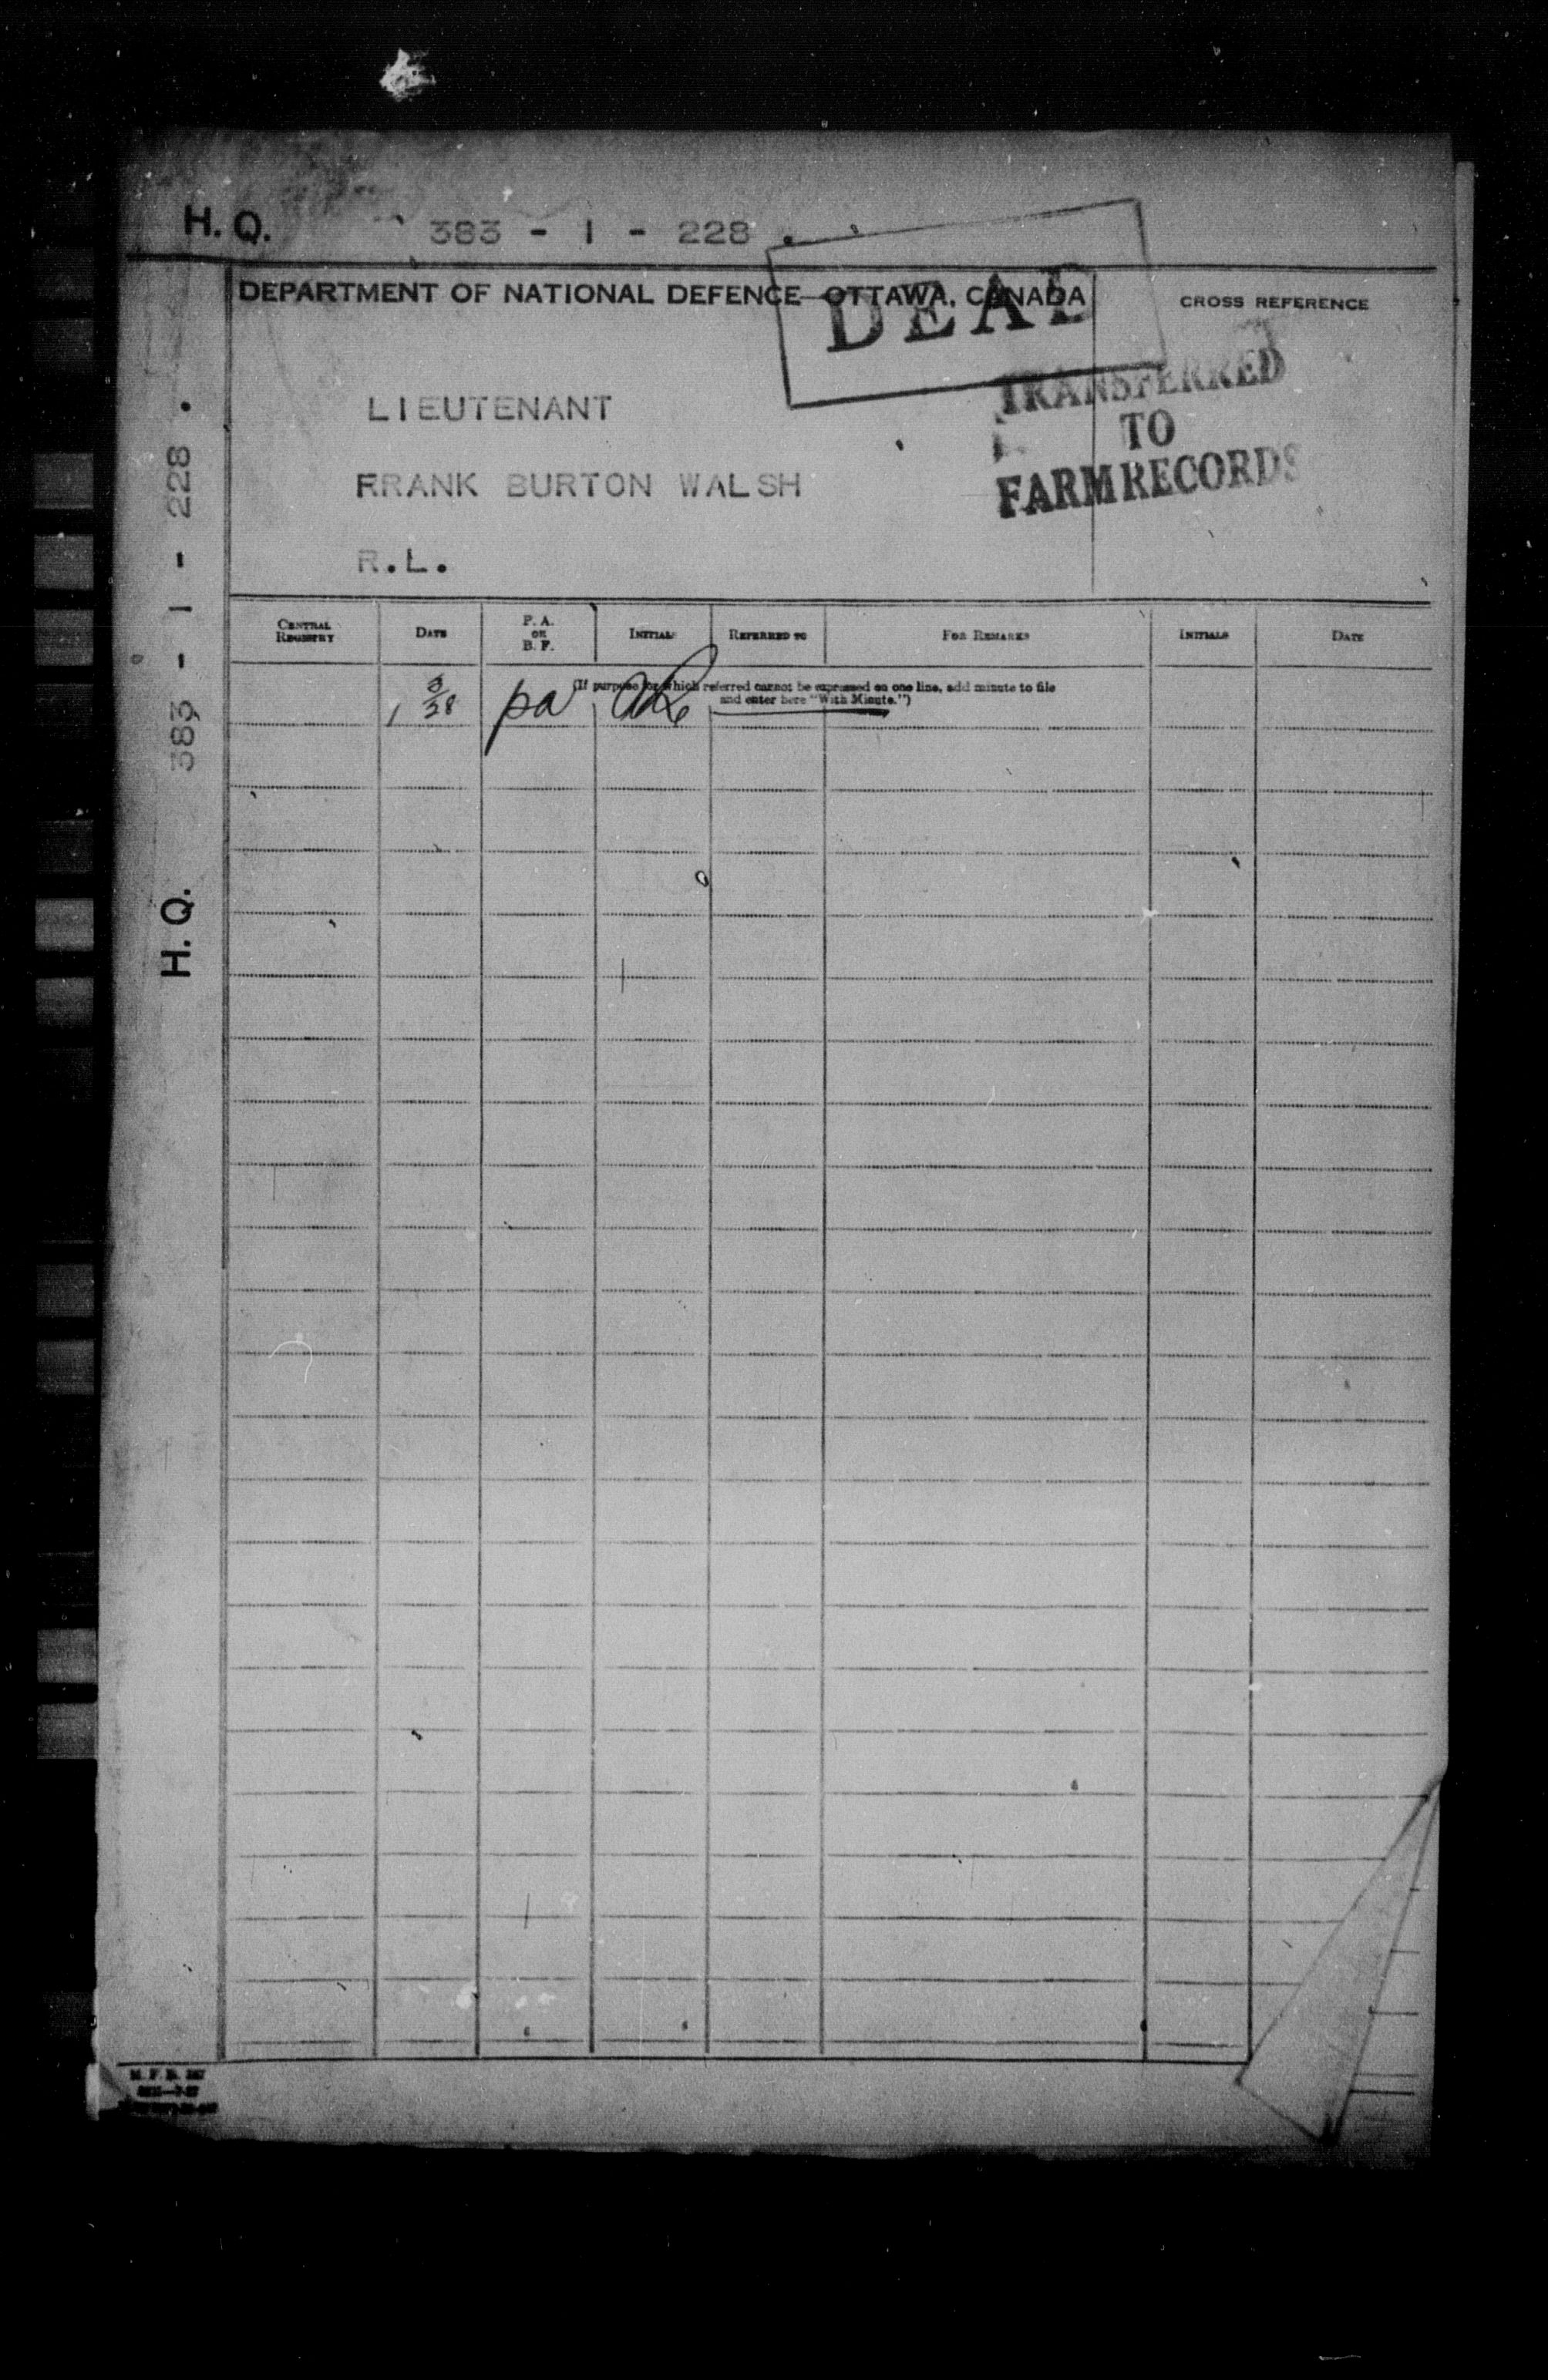 H. Q. 383 - 1 - 228 .
DEPARTMENT OF NATIONAL DEFENCE—OTTAWA, CANADA
CROSS REFERENCE
DEAD
TRANSFERRED
TO
FARM RECORDS
LIEUTENANT
FRANK BURTON WALSH
R.L.
H. Q. 383 - 1 - 228 .
CENTRAL REGISTRY
DATE
P. A. OR B. F.
INITIALS
REFERRED TO
FOR REMARKS
INITIALS
DATE
(If purpose for which referred cannot be expressed on one line, add minute to file
and enter here "With Minute.")
1 3/38 pa